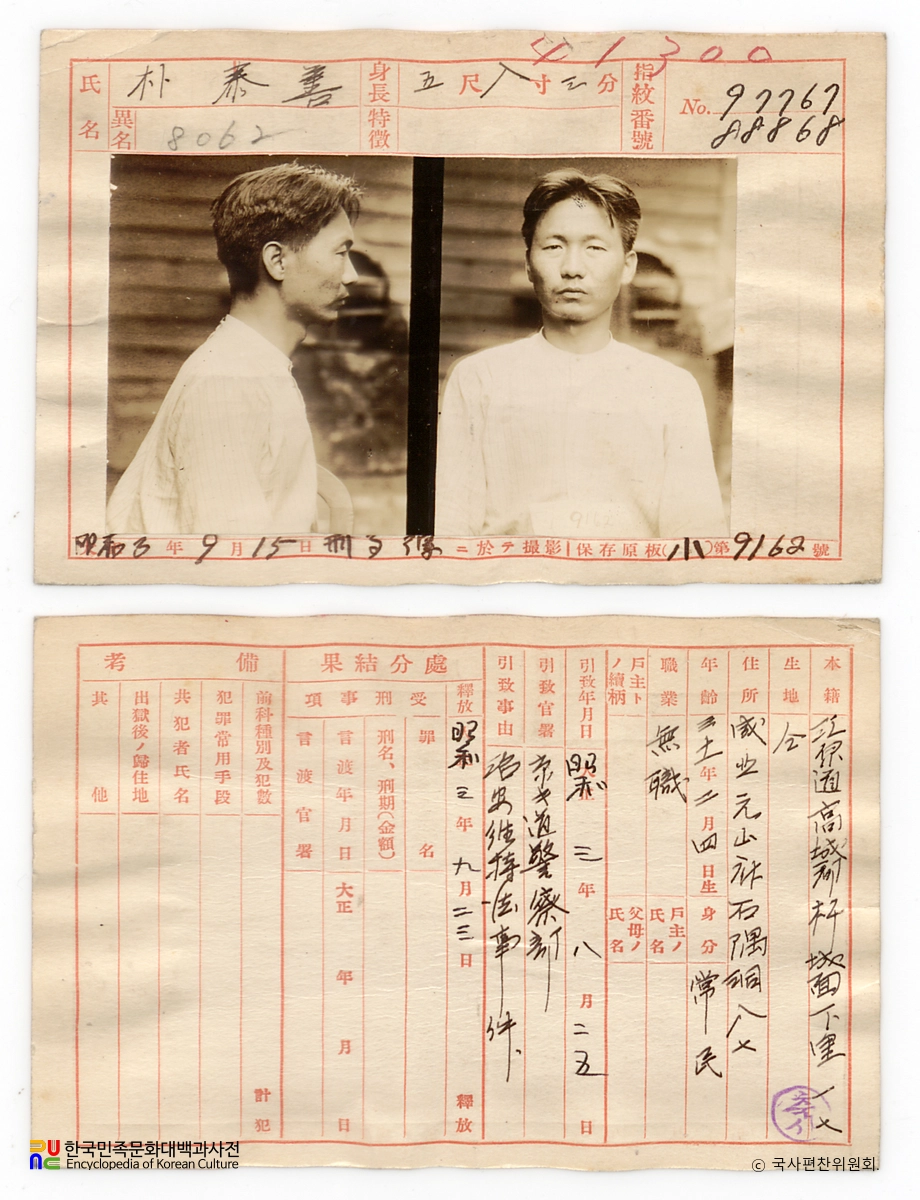 41300
氏名 朴泰善
異名 8062
身長 五尺八寸三分
特徵
指紋番號 No. 97767
88868
9162
昭和3年9月15日 刑事課ニ於テ撮影 保存原板(小)第9162號
本籍 江原道高城郡杆城面下里一七
生地 仝
住所 咸北元山府石隅洞八七
年齡 年二月四日生
身分 常民
職業 無職
戶主ノ氏名
戶主トノ續柄
父母ノ氏名
引致年月日 昭和三年八月二五日
引致官署 京キ道警察部
引致事由 治安維持法事件、
處分結果
釋放 昭和三年九月二三日 釋放
受刑事項
罪名
刑名、刑期(金額)
言渡年月日 大正 年 月 日
言渡官署
備考
前科種別及犯數 計 犯
犯罪常用手段
共犯者氏名
出獄後ノ歸住地
其他
한국민족문화대백과사전
Encyclopedia of Korean Culture
© 국사편찬위원회